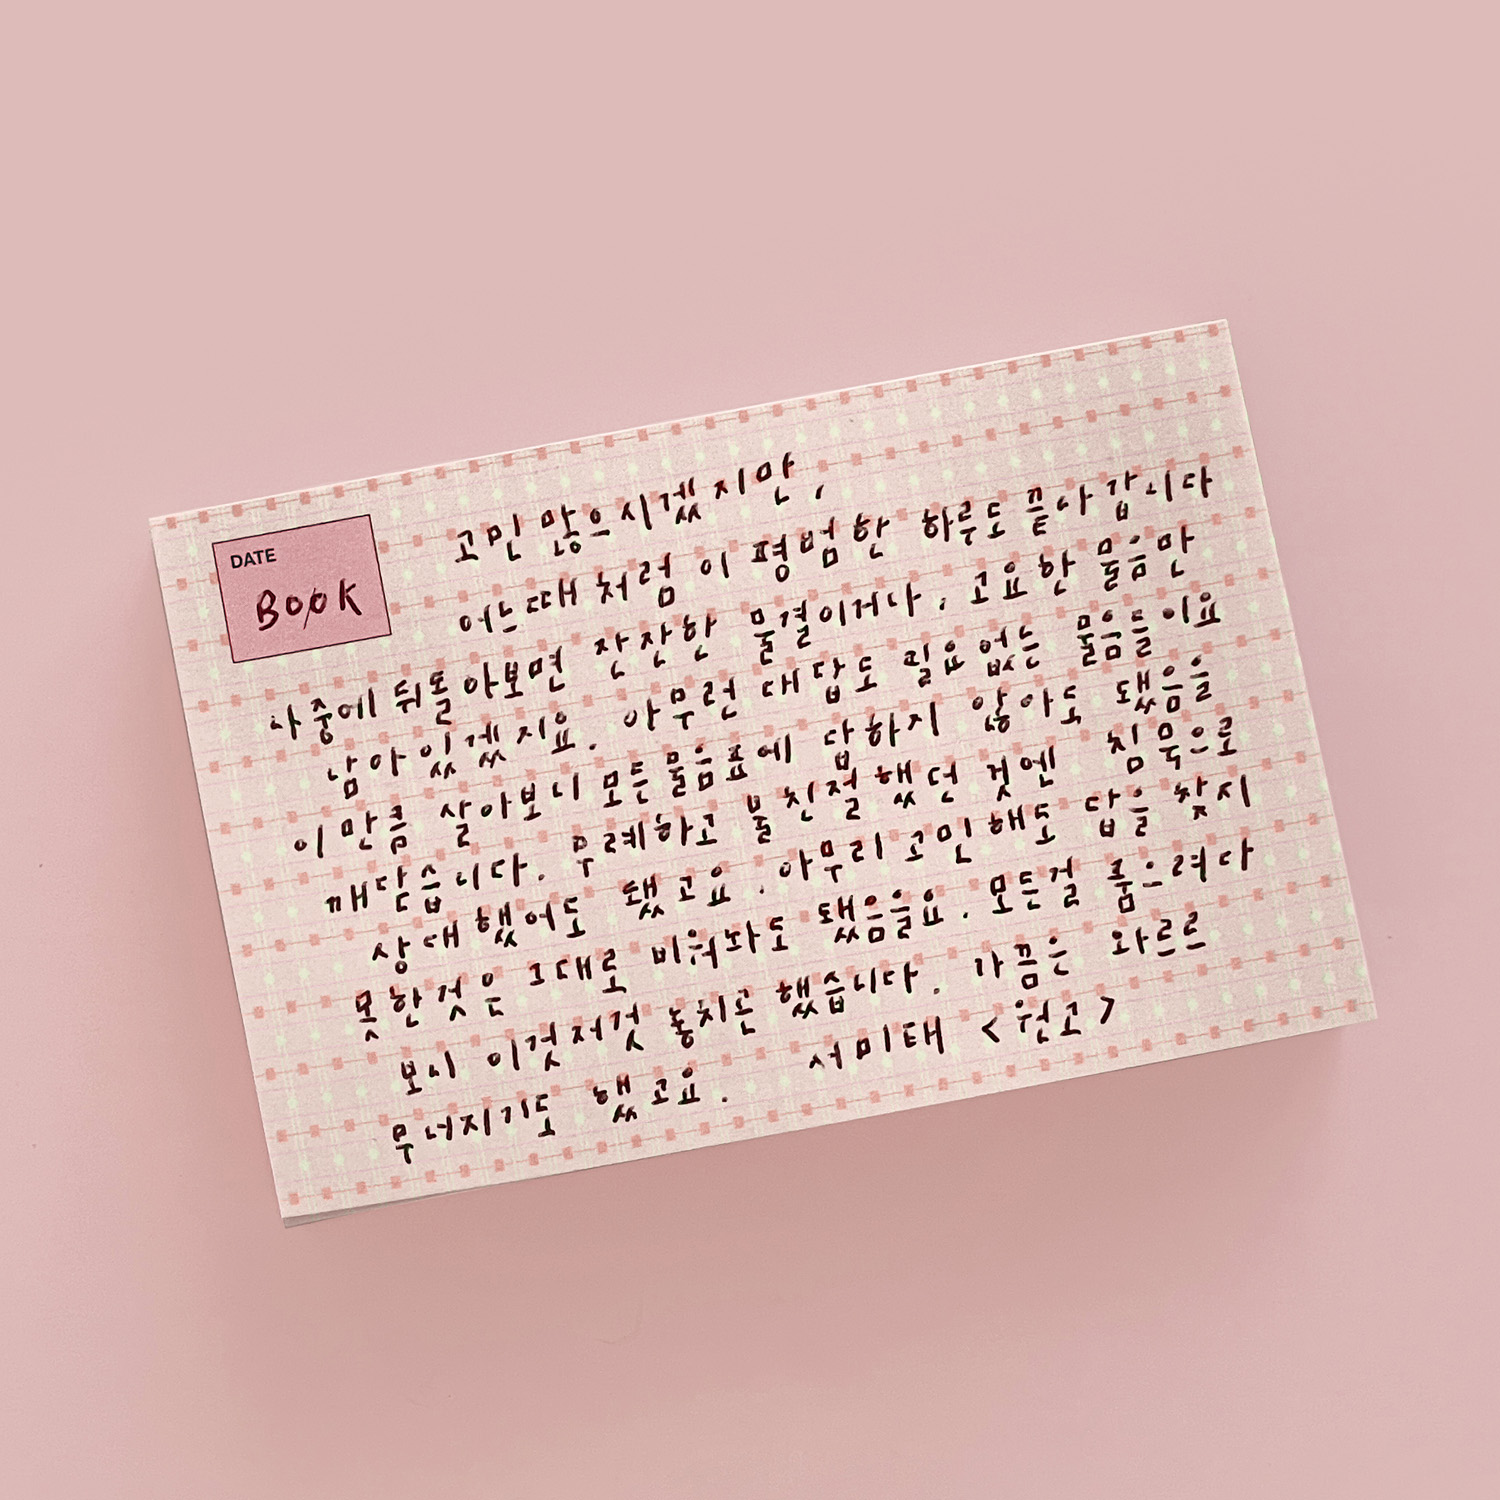 DATE
BOOK
고민 많으시겠지만,
여느때처럼 이 평범한 하루도 끝나갑니다
나중에 뒤돌아보면 잔잔한 물결이거나, 고요한 물음만
남아있겠지요. 아무런 대답도 필요없는 물음들이요
이만큼 살아보니 모든 물음표에 답하지 않아도 됐음을
깨닫습니다. 무례하고 불친절했던 것엔 침묵으로
상대했어도 됐고요. 아무리 고민해도 답을 찾지
못한것은 그대로 비워놔도 됐음을요. 모든걸 품으려다
보니 이것저것 놓치곤 했습니다. 가끔은 와르르
무너지기도 했고요. 서미태 <원고>